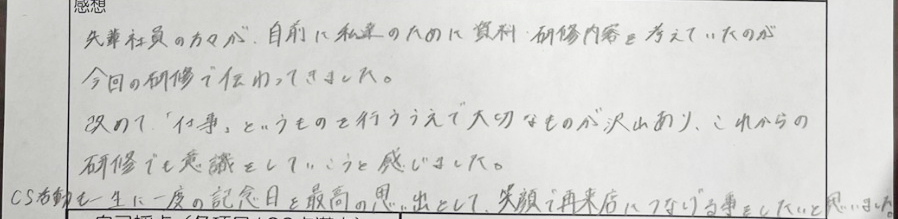 感想
先輩社員の方々が、自前に私達のために資料・研修内容を考えていたのが
今回の研修で伝わってきました。
改めて、「仕事」というものを行ううえで大切なものが沢山あり、これからの
研修でも意識をしていこうと感じました。
CS活動も一生に一度の記念日を最高の思い出として、笑顔で再来店につなげる事をしたいと思いました。